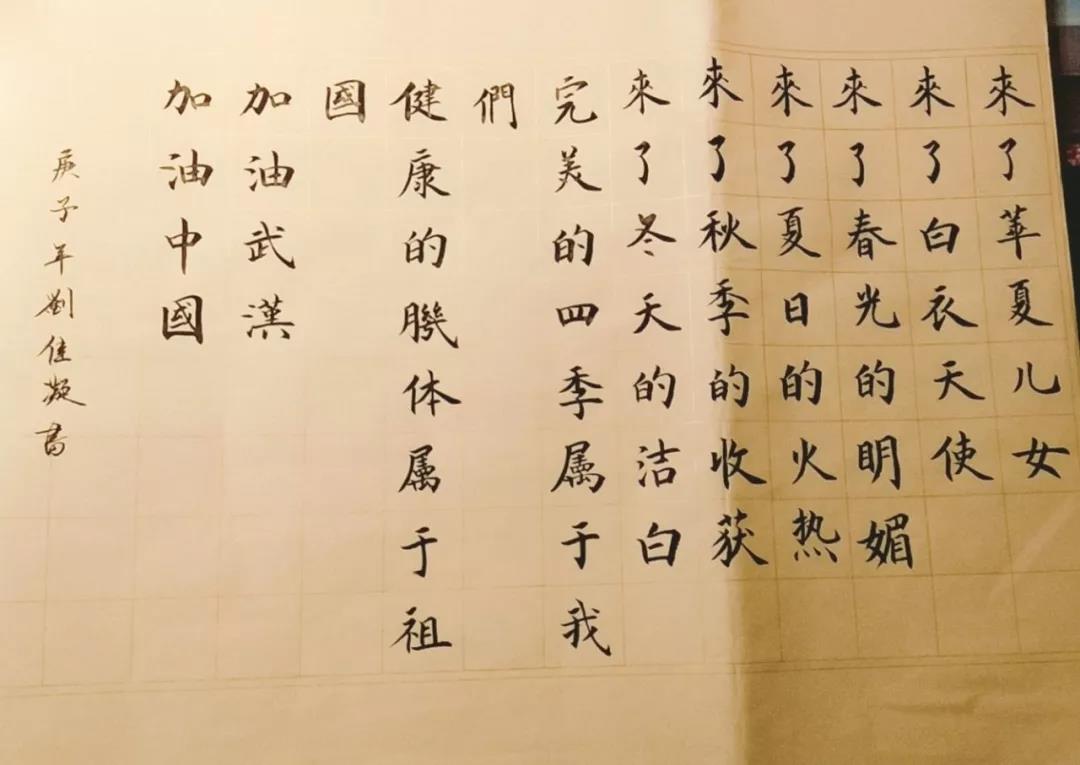 來了華夏儿女
來了白衣天使
來了春光的明媚
來了夏日的火热
來了秋季的收获
來了冬天的洁白
完美的四季属于我
們
健康的機体属于祖
國
加油武漢
加油中國
庚子年劉佳凝書